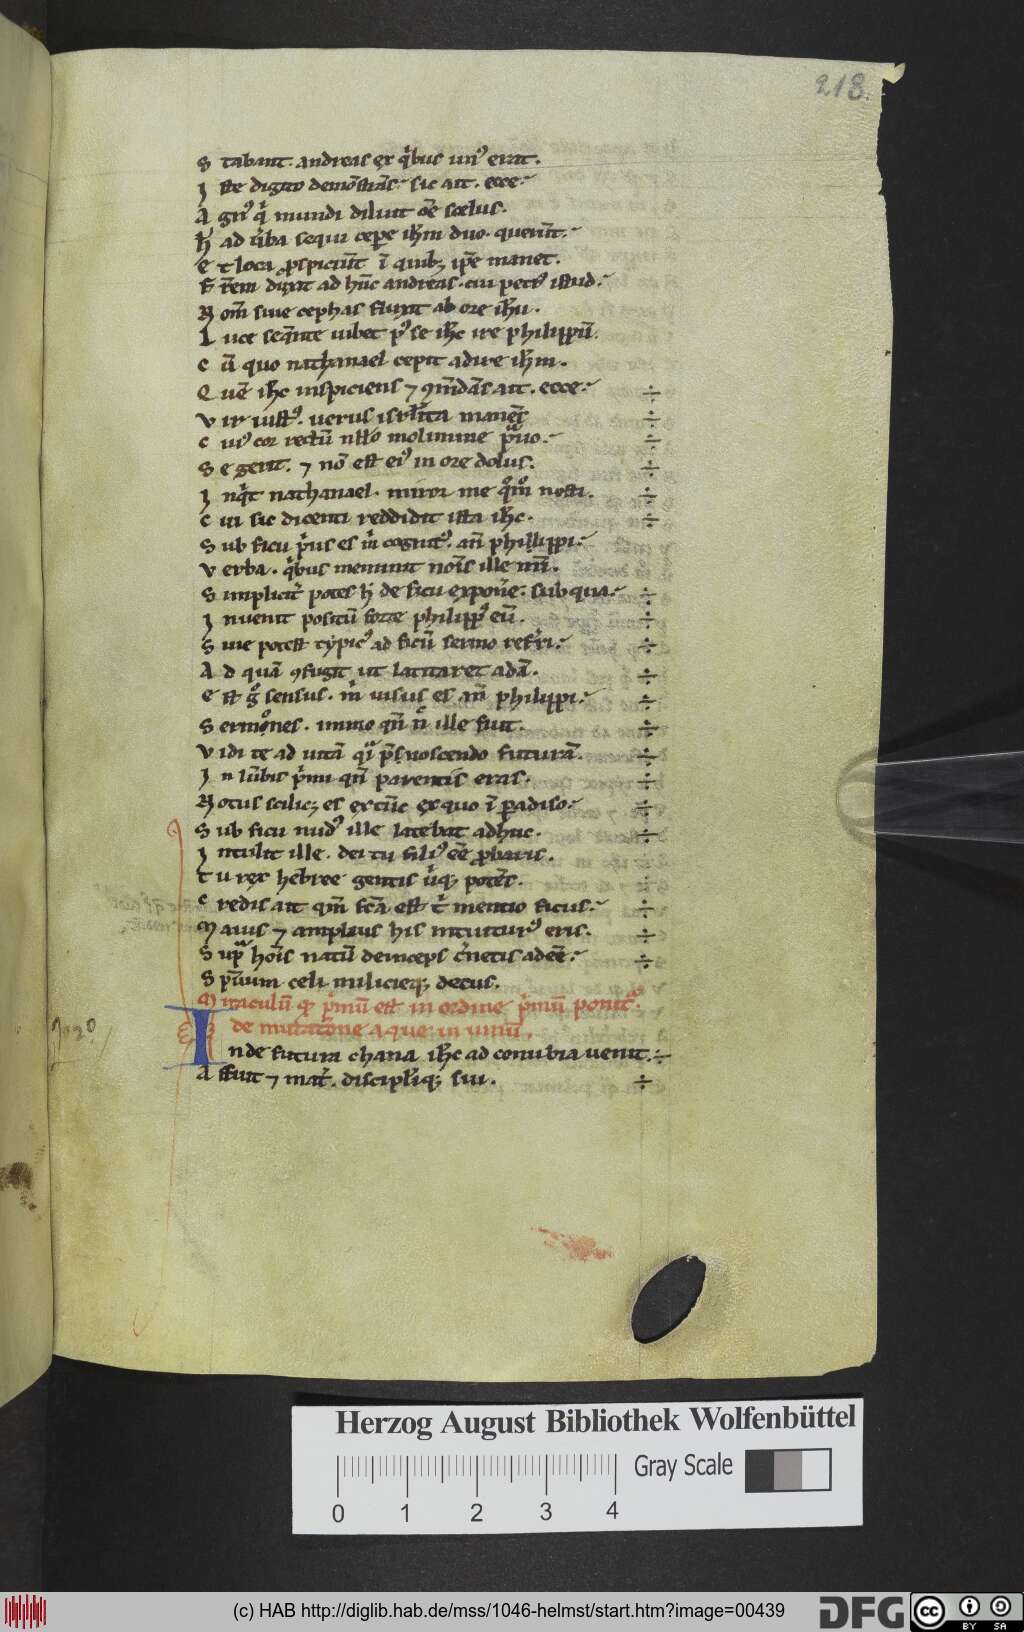 218.
S tabant. andreas ex q'bus un' erat.
I ste digito demōstrās. sic ait. ecce.
A gn' q' mundi diluit ōē scelus.
H ad ūba sequi cepe ih'm duo. querūt.
E t loca pspiciūt ī quib; ip̄e manet.
F r̄em dixit ad hūc andreas. cui petr' istud.
N om̄ siue cephas fluxit ab ore ih'u.
L uce seq̄nte iubet p' se ih'c ire philippū.
C ū quo nathanael cepit adire ih'm.
Q uē ih'c inspiciens ⁊ ꝯm̄dās ait. ecce. ÷
V ir iust'. uerus isrl'ita manens ÷
C ui' cor rectū nll'o molimine prauo. ÷
S e gerit. ⁊ nō est ei' in ore dolus. ÷
I nq't nathanael. miror me qm̊ nosti. ÷
C ui sic dicenti reddidit ista ih'c. ÷
S ub ficu p'us es m' cognit'. an̄ philippi.
V erba. q'bus meminit nōīs ille mī.
S implicit' potes h' de ficu expon̄e. sub qua. ÷
I nuenit positū forte philipp' eū. ÷
S iue potest typic' ad ficū sermo ref'ri. ÷
A d quā ꝯfugit ut latitaret adā. ÷
E st g° sensus. m' uisus es an̄ philippi. ÷
S ermones. immo qn̄ n̄ ille fuit. ÷
V idi te ad uitā qia p̄snoscendo futurā. ÷
I n lūbis p'mi qn̄ parentis eras. ÷
N otus scilic; es ex tūc ex quo ī padiso. ÷
S ub ficu nud' ille latebat adhuc. ÷
I ntulit ille. dei tu fili' eē pbaris. ÷
T u rex hebree gentis ūq; potēs. ÷
C redis ait qm̄ fc̄a est t' mentio ficus. ÷
M aius ⁊ amplius his intuitur' eris. ÷
S upra hoīs natū deinceps c'netis adeē. ÷
S p̄uum celi milicieq; decus.
M iraculū qd p'mū est in ordine p'mū ponit'.
de mutatione aque in uinū.
I nde futura chana ih'c ad conubia uenit. ÷
A ffuit ⁊ mat'. discipliq; sui. ÷
Herzog August Bibliothek Wolfenbüttel
Gray Scale
0 1 2 3 4
(c) HAB http://diglib.hab.de/mss/1046-helmst/start.htm?image=00439
DFG
cc BY SA